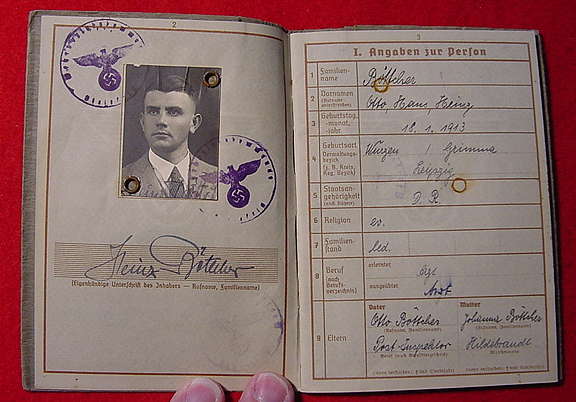 2
Heinz Böttcher
(Eigenhändige Unterschrift des Inhabers — Rufname, Familienname)
3
I. Angaben zur Person
1 Familien-
name
Böttcher
2 Vornamen
(Rufname
unterstreichen)
Otto, Hans, Heinz
3 Geburtstag,
-monat,
-jahr
18. 1. 1913
4 Geburtsort
Verwaltungs-
bezirk
(z. B. Kreis,
Reg. Bezirk)
Wurzen / Grimma
Leipzig
5 Staatsan-
gehörigkeit
(auch frühere)
D. R.
6 Religion
ev.
7 Familien-
stand
led.
8 Beruf
(nach
Berufs-
verzeichnis)
erlernter
ausgeübter
Arzt
9 Eltern
Vater
Mutter
Otto Böttcher
Johanna Böttcher
(Rufname, Familienname)
Post-Inspektor
Hildebrandt